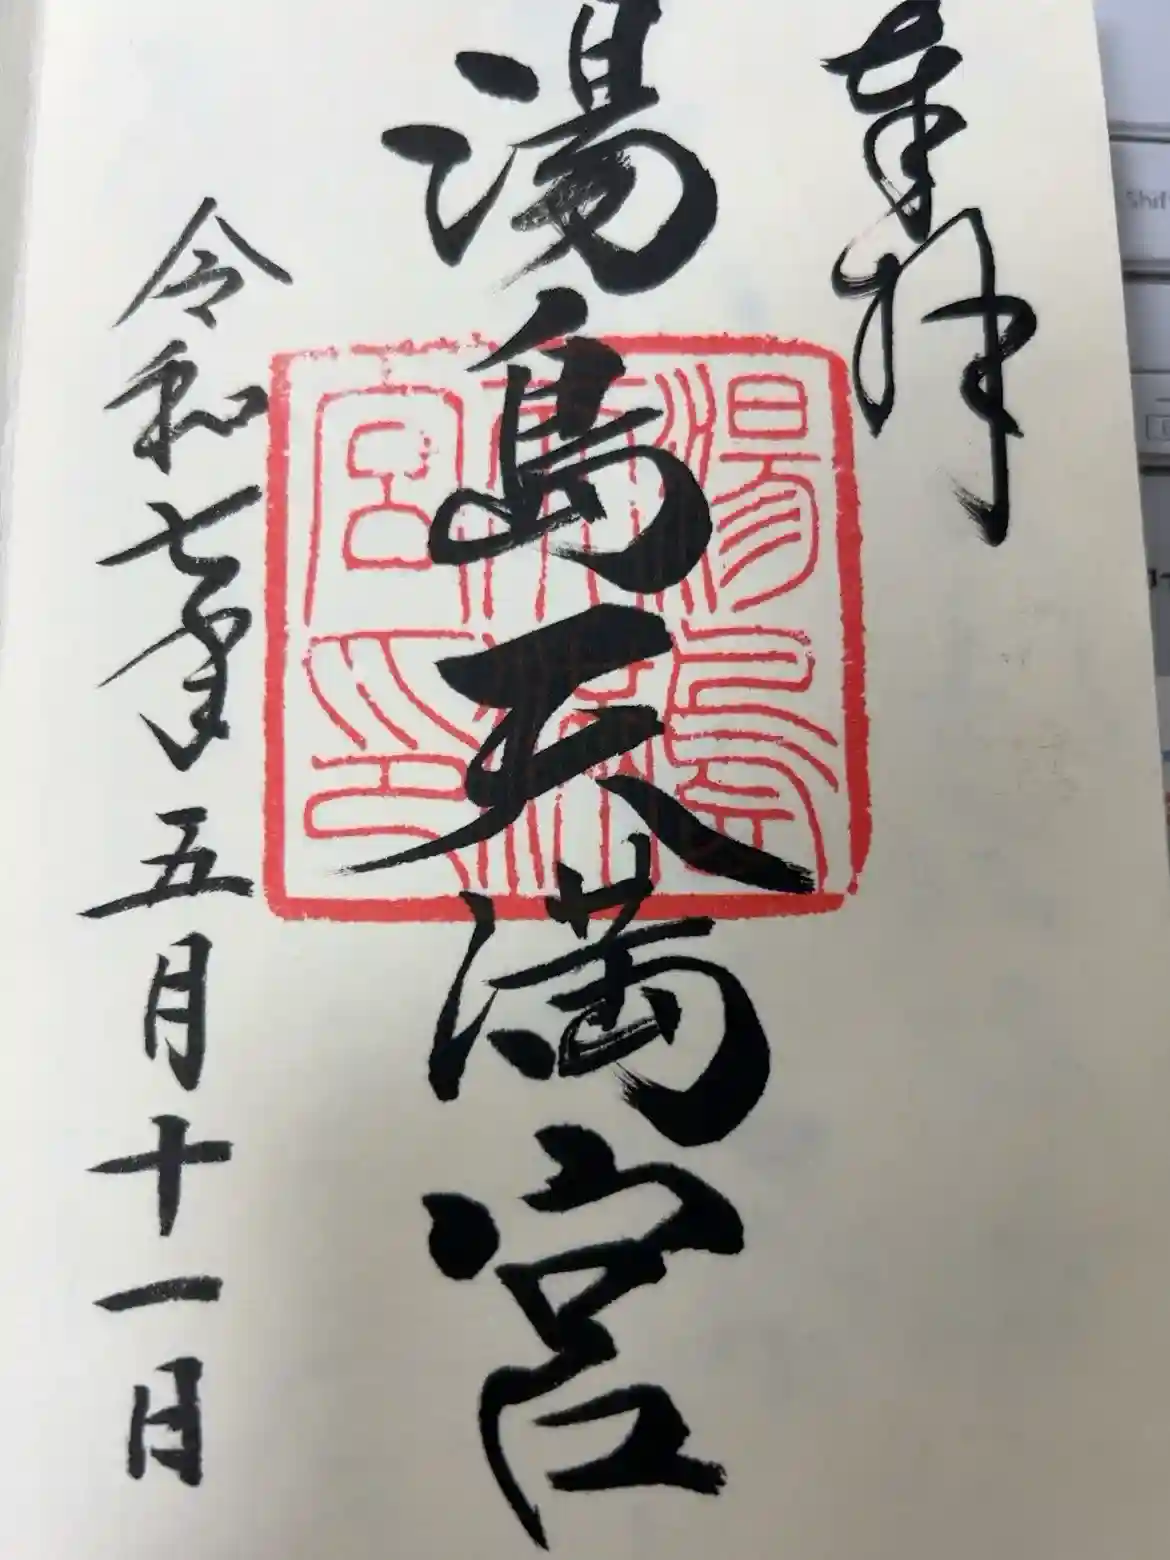 奉拝
湯島天満宮
湯島天満宮印
令和七年五月十一日
Shift